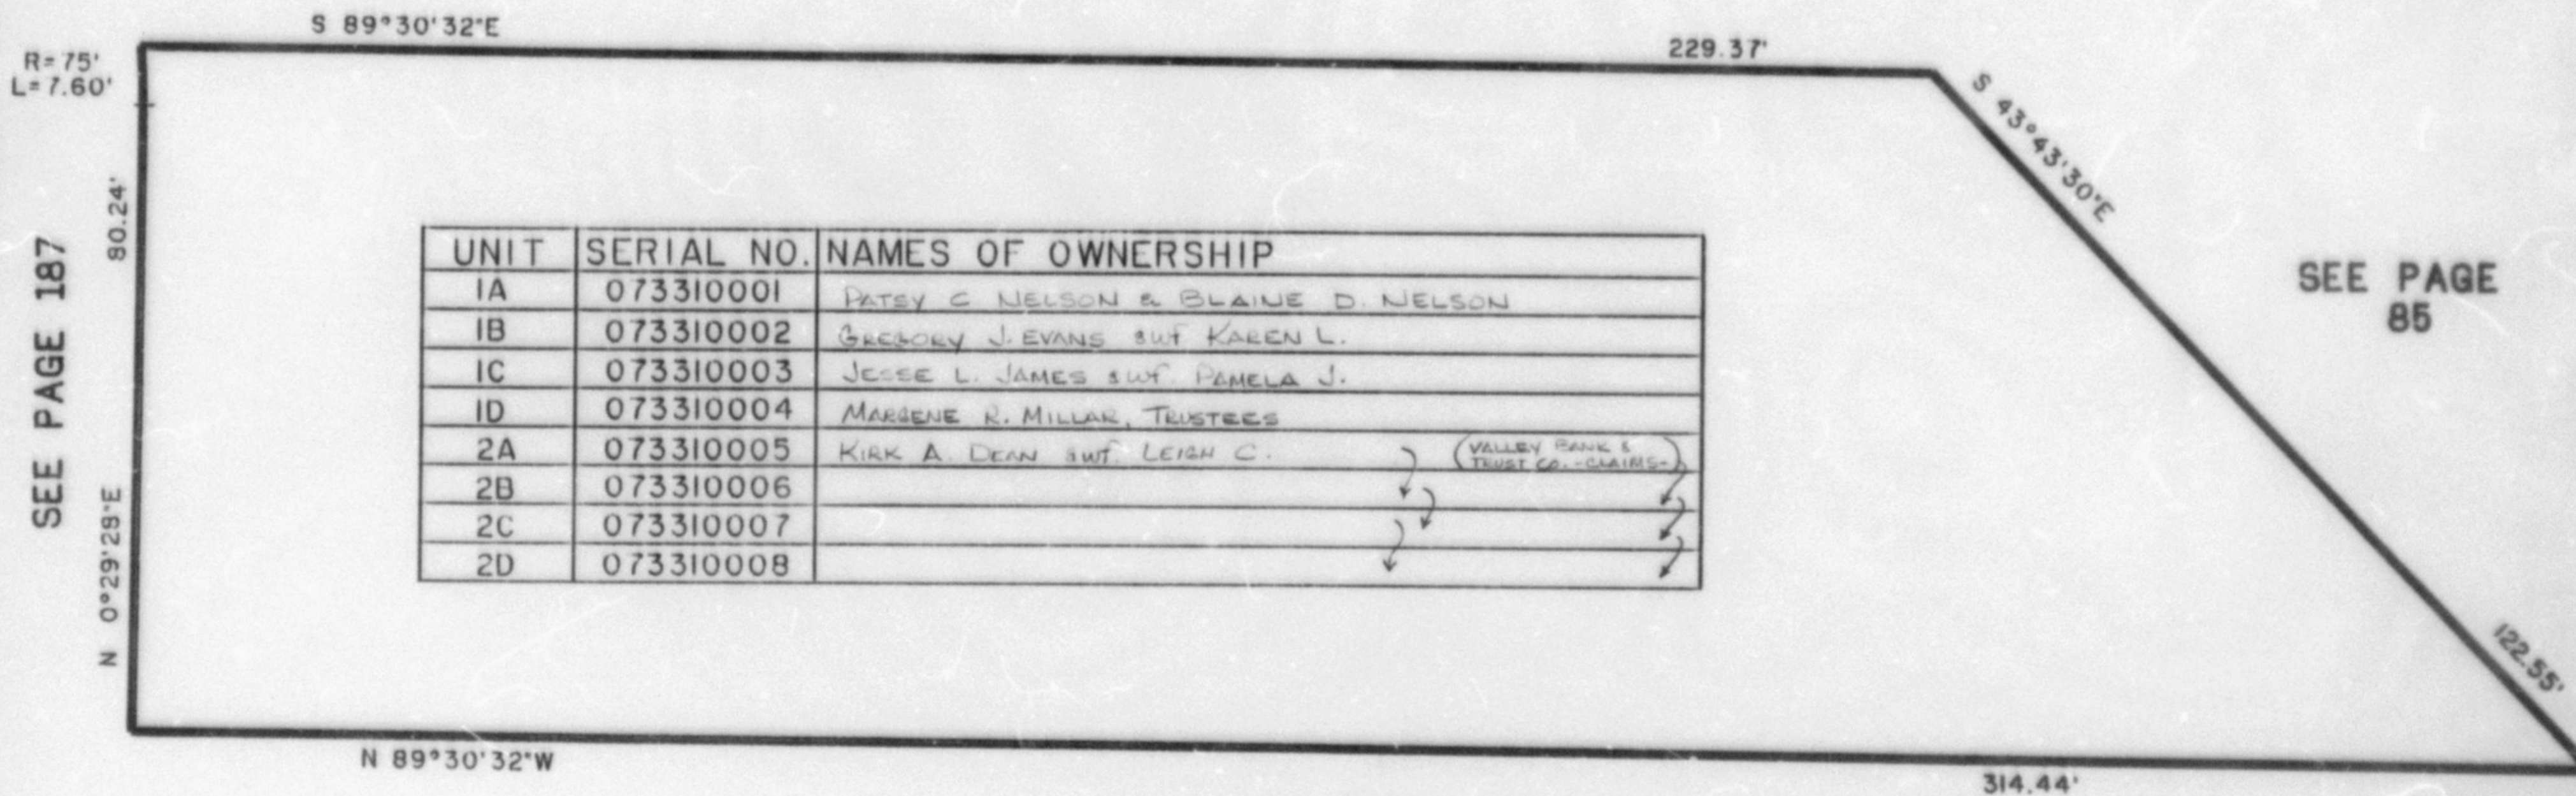 S 89°30'32"E
229.37'
R=75'
L=7.60'
S 43°43'30"E
80.24'
SEE PAGE 187
N 0°29'28"E
SEE PAGE
85
UNIT SERIAL NO. NAMES OF OWNERSHIP
1A 073310001 PATSY C NELSON & BLAINE D. NELSON
1B 073310002 GREGORY J. EVANS &wf KAREN L.
1C 073310003 JESSE L. JAMES &wf. PAMELA J.
1D 073310004 MARGENE R. MILLAR, TRUSTEES
2A 073310005 KIRK A. DEAN &wf. LEIGH C. (VALLEY BANK &
TRUST CO. -CLAIMS-)
2B 073310006
2C 073310007
2D 073310008
122.55'
N 89°30'32"W
314.44'